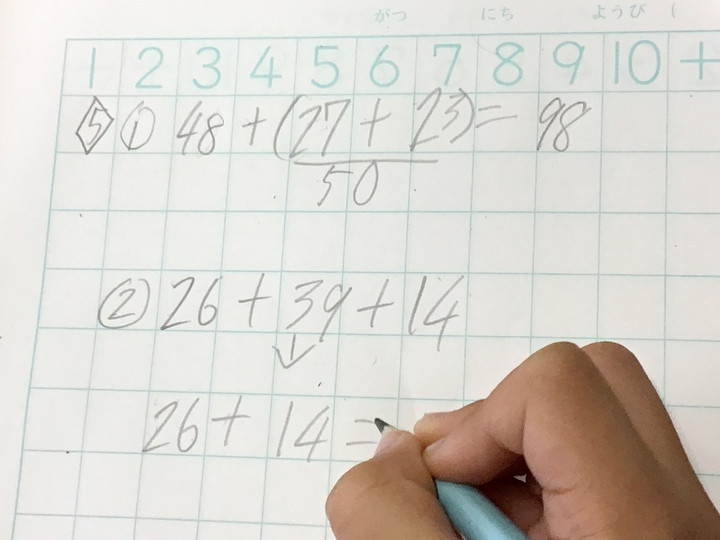 がつ にち ようび (
1 2 3 4 5 6 7 8 9 10 +
5 ① 48 + (27 + 23) = 98
50
② 26 + 39 + 14
↓
26 + 14 =